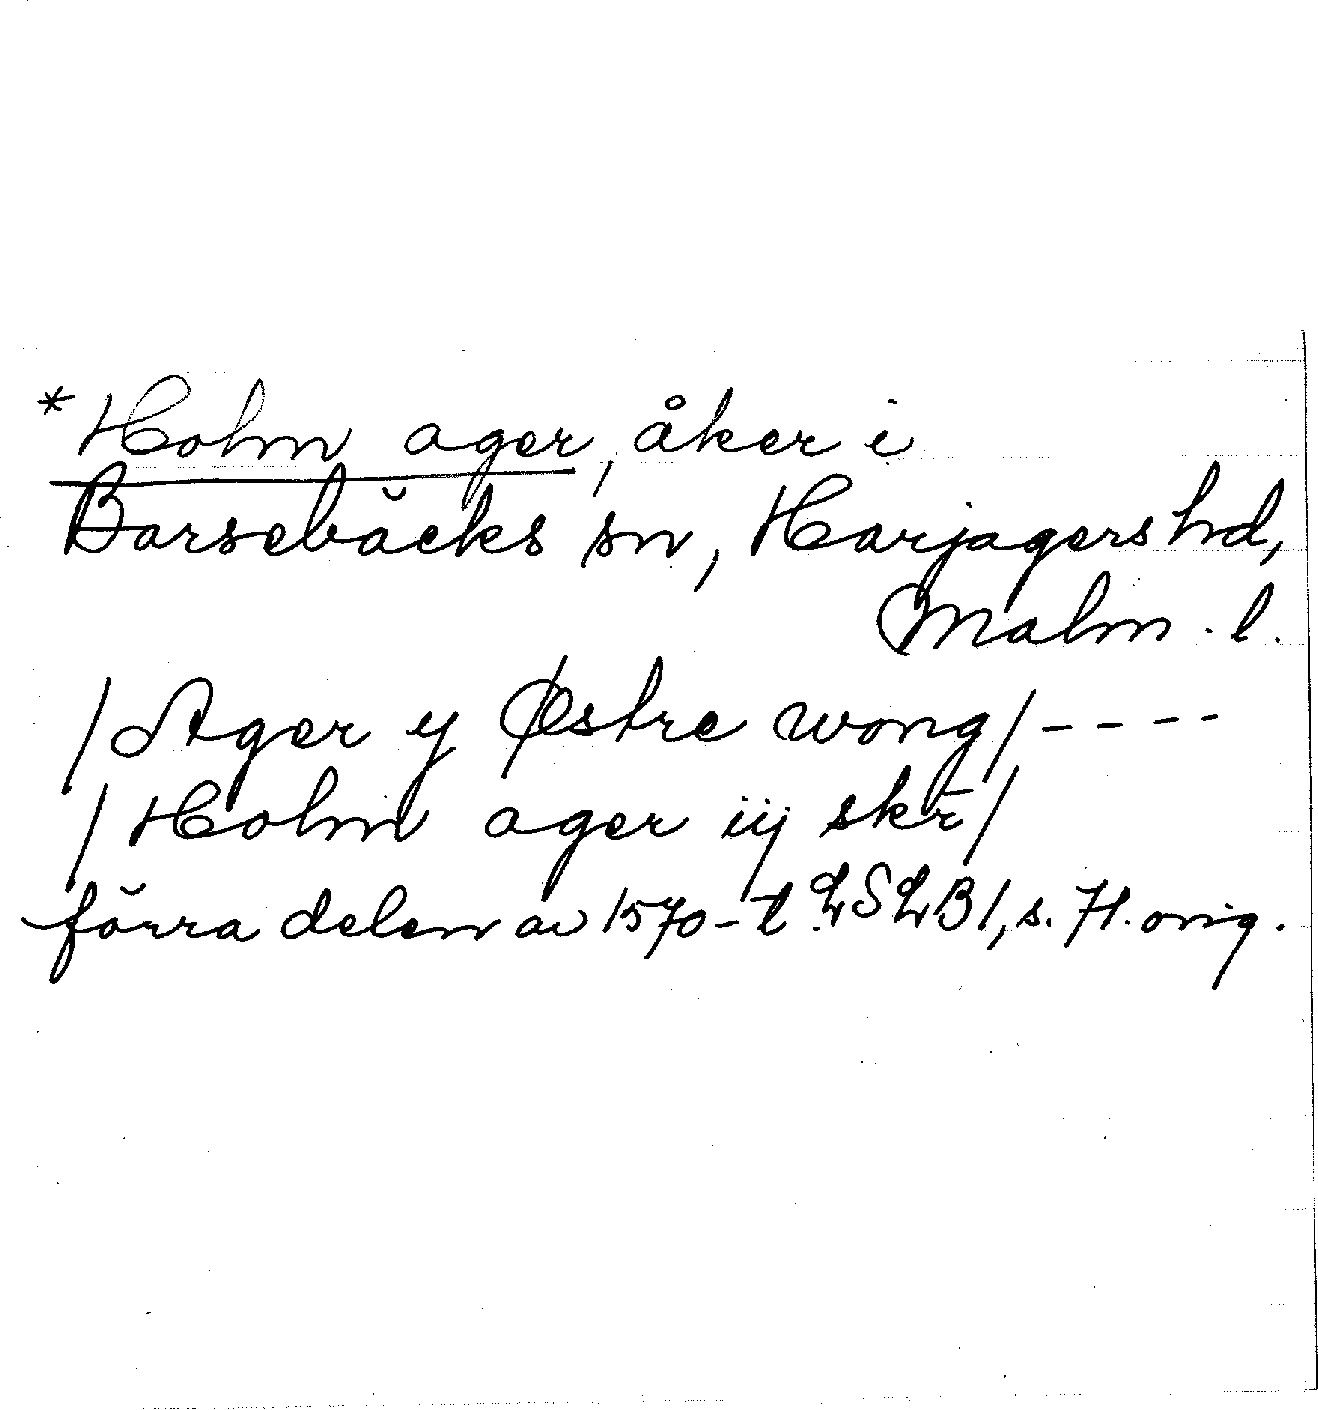 *Holm ager, åker i
Barsebäcks sn, Harjagers hd,
Malm. l.
/Ager y Østre wong/----
/Holm ager iij skr̄/
förra delen av 1570-t. LSLB 1, s. 71. orig.